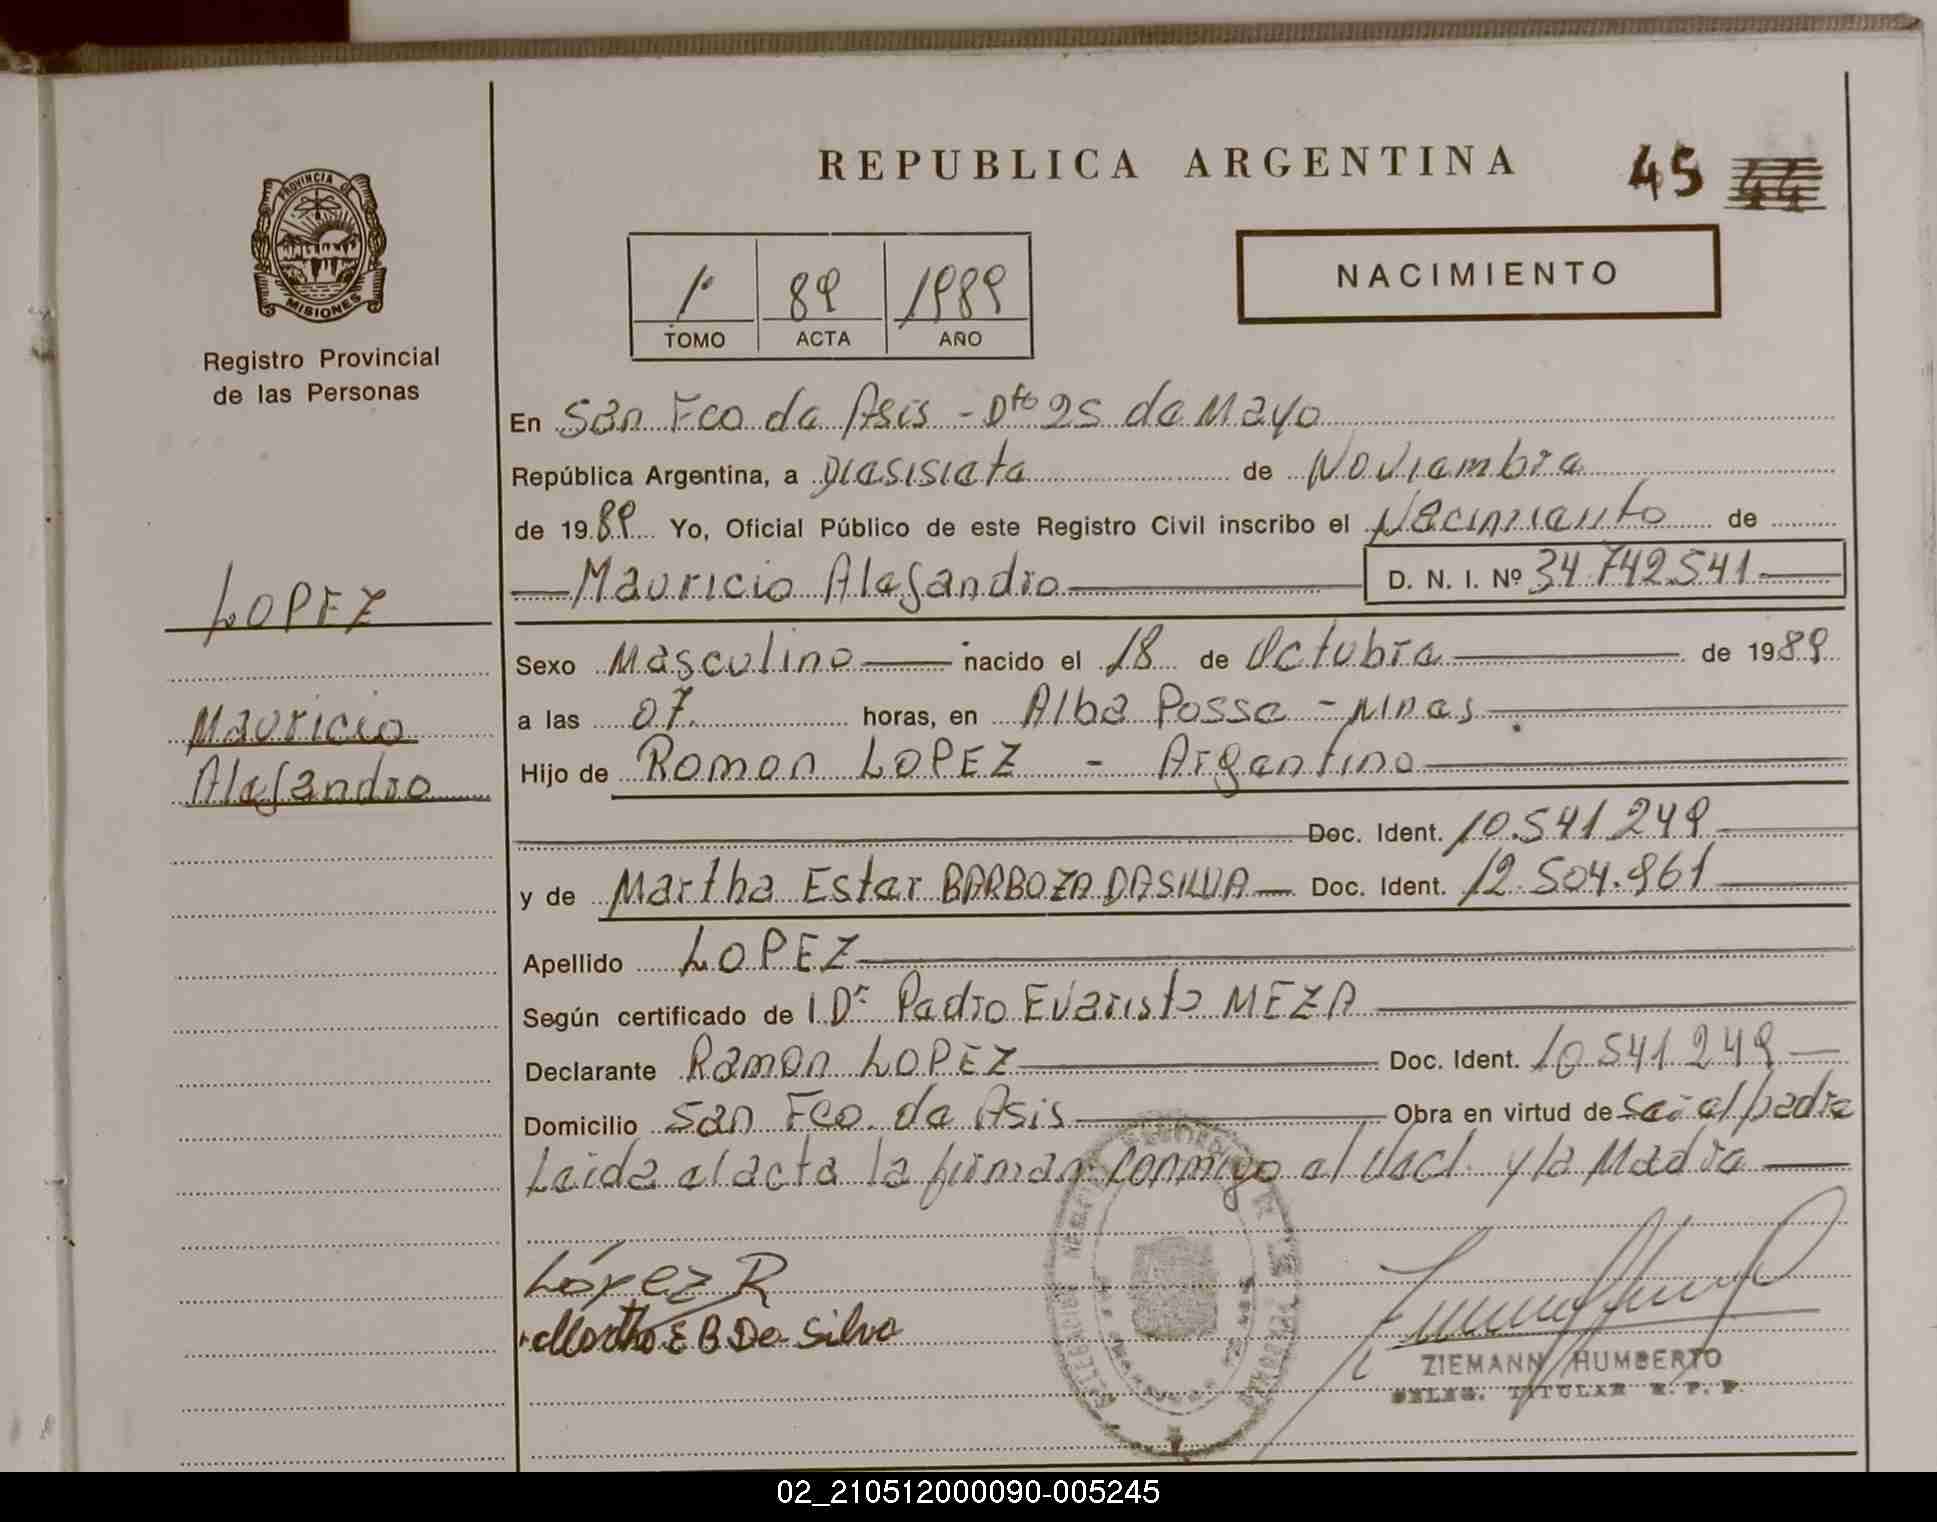 REPUBLICA ARGENTINA
45 44
PROVINCIA DE MISIONES
Registro Provincial
de las Personas
1º 89 1989
TOMO ACTA AÑO
NACIMIENTO
En San Fco de Asis - Dto 25 de Mayo
República Argentina, a Diesisiete de Noviembre
de 1989 Yo, Oficial Público de este Registro Civil inscribo el Nacimiento de
Mauricio Alejandro D. N. I. Nº 34.742.541
LOPEZ
Mauricio
Alejandro
Sexo Masculino nacido el 18 de Octubre de 1989
a las 07 horas, en Alba Posse - Mnes
Hijo de Ramon LOPEZ - Argentino
Doc. Ident. 10.541.249
y de Martha Ester BARBOZA DASILVA Doc. Ident. 12.504.961
Apellido LOPEZ
Según certificado de l Dr Pedro Evaristo MEZA
Declarante Ramon LOPEZ Doc. Ident. 10.541.249
Domicilio San Fco. de Asis Obra en virtud de Ser el padre
Leida el acta la firman conmigo el Decl. y la Madre
López R
Martha E B Da Silva
ZIEMANN HUMBERTO
DELEG. TITULAR R. P. P.
02_210512000090-005245